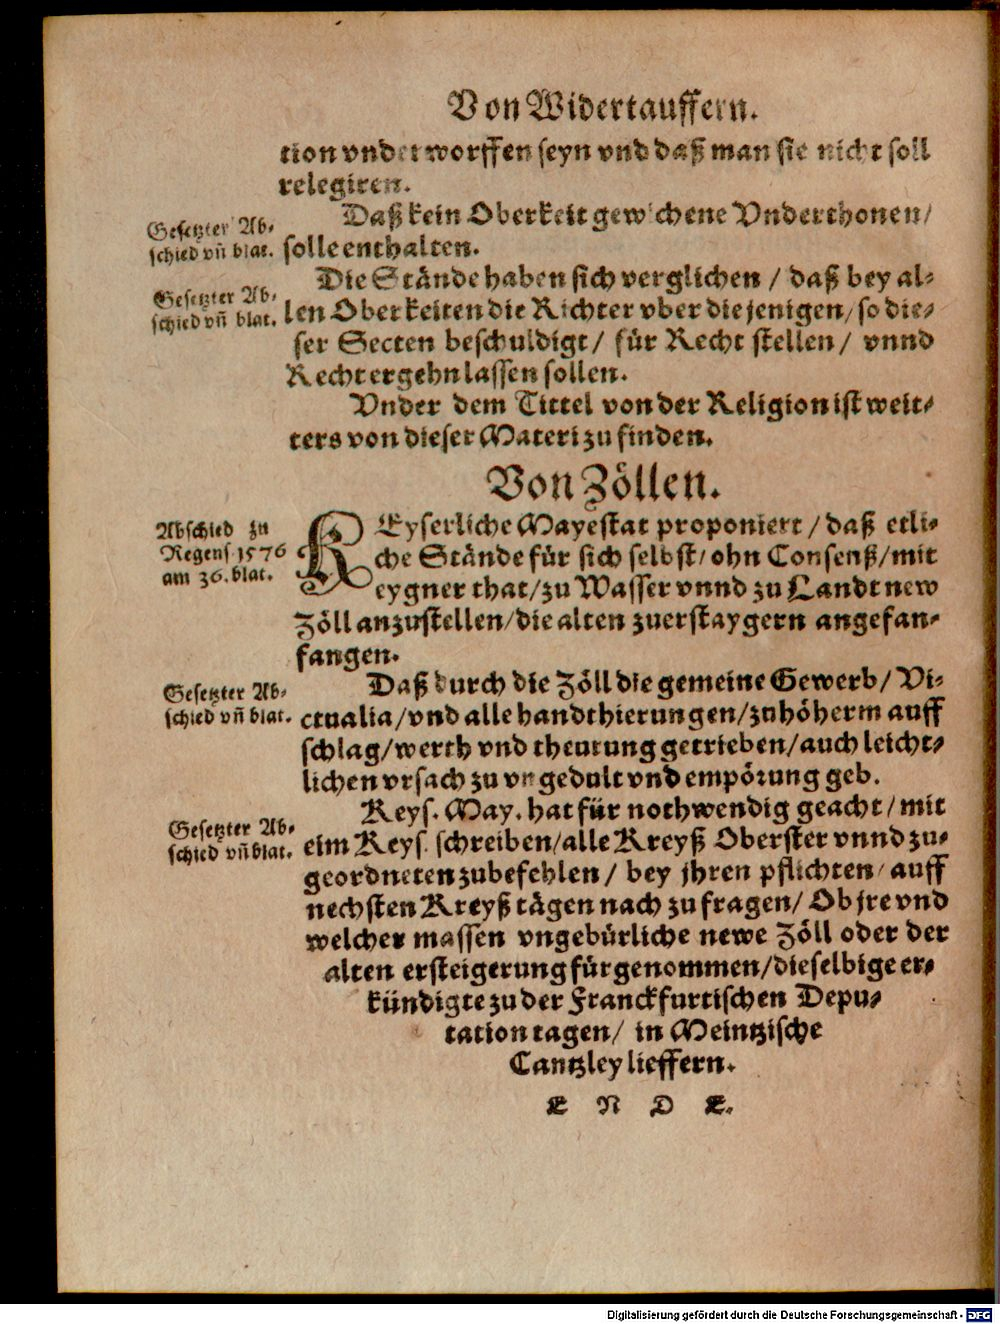 Von Widertauffern.
tion vnderworffen seyn vnd daß man sie nicht soll
relegiren.
Daß kein Oberkeit gewichene Vnderthonen/
solle enthalten.
Gesetzter Ab-
schied vñ blat.
Die Stände haben sich verglichen / daß bey al-
len Oberkeiten die Richter vber die jenigen/ so die-
ser Secten beschuldigt/ für Recht stellen/ vnnd
Recht ergehn lassen sollen.
Gesetzter Ab-
schied vñ blat.
Vnder dem Tittel von der Religion ist weit-
ters von dieser Materi zu finden.
Von Zöllen.
KEyserliche Mayestat proponiert / daß etli-
che Stände für sich selbst/ ohn Consenß/ mit
eygner that/ zu Wasser vnnd zu Landt new
Zöll anzustellen/ die alten zuerstaygern angefan-
fangen.
Abschied zu
Regens 1576
am 36. blat.
Daß durch die Zöll die gemeine Gewerb/ Vi-
ctualia/ vnd alle handthierungen/ zu höherm auff
schlag/ werth vnd theurung getrieben/ auch leicht-
lichen vrsach zu vngedult vnd empörung geb.
Gesetzter Ab-
schied vñ blat.
Keys. May. hat für nothwendig geacht/ mit
eim Keys. schreiben/ alle Kreyß Oberster vnnd zu-
geordneten zubefehlen/ bey jhren pflichten/ auff
nechsten Kreyß tägen nach zu fragen/ Ob jre vnd
welcher massen vngebürliche newe Zöll oder der
alten ersteigerung fürgenommen/ dieselbige er-
kündigte zu der Franckfurtischen Depu-
tation tagen/ in Meintzische
Cantzley lieffern.
Gesetzter Ab-
schied vñ blat.
E N D E.
Digitalisierung gefördert durch die Deutsche Forschungsgemeinschaft - DFG